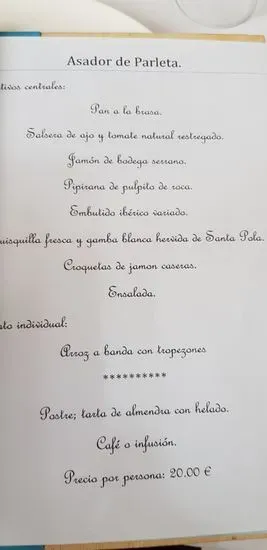 Asador de Parleta.
tivos centrales:
Pan a la brasa.
Salsera de ajo y tomate natural restregado.
Jamón de bodega serrano.
Pipirana de pulpito de roca.
Embutido ibérico variado.
uisquilla fresca y gamba blanca hervida de Santa Pola.
Croquetas de jamon caseras.
Ensalada.
ato individual:
Arroz a banda con tropezones
**********
Postre; tarta de almendra con helado.
Café o infusión.
Precio por persona: 20.00 €